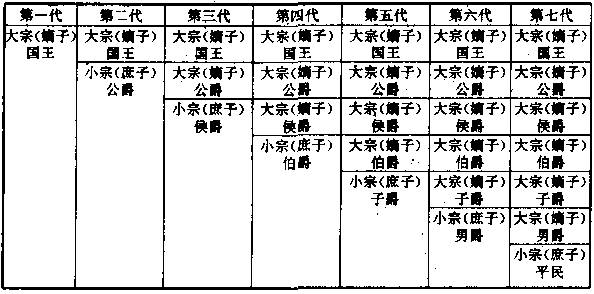 第一代 第二代 第三代 第四代 第五代 第六代 第七代
大宗(嫡子) 大宗(嫡子) 大宗(嫡子) 大宗(嫡子) 大宗(嫡子) 大宗(嫡子) 大宗(嫡子)
国王 国王 国王 国王 国王 国王 国王
小宗(庶子) 大宗(嫡子) 大宗(嫡子) 大宗(嫡子) 大宗(嫡子) 大宗(嫡子)
公爵 公爵 公爵 公爵 公爵 公爵
小宗(庶子) 大宗(嫡子) 大宗(嫡子) 大宗(嫡子) 大宗(嫡子)
侯爵 侯爵 侯爵 侯爵 侯爵
小宗(庶子) 大宗(嫡子) 大宗(嫡子) 大宗(嫡子)
伯爵 伯爵 伯爵 伯爵
小宗(庶子) 大宗(嫡子) 大宗(嫡子)
子爵 子爵 子爵
小宗(庶子) 大宗(嫡子)
男爵 男爵
小宗(庶子)
平民